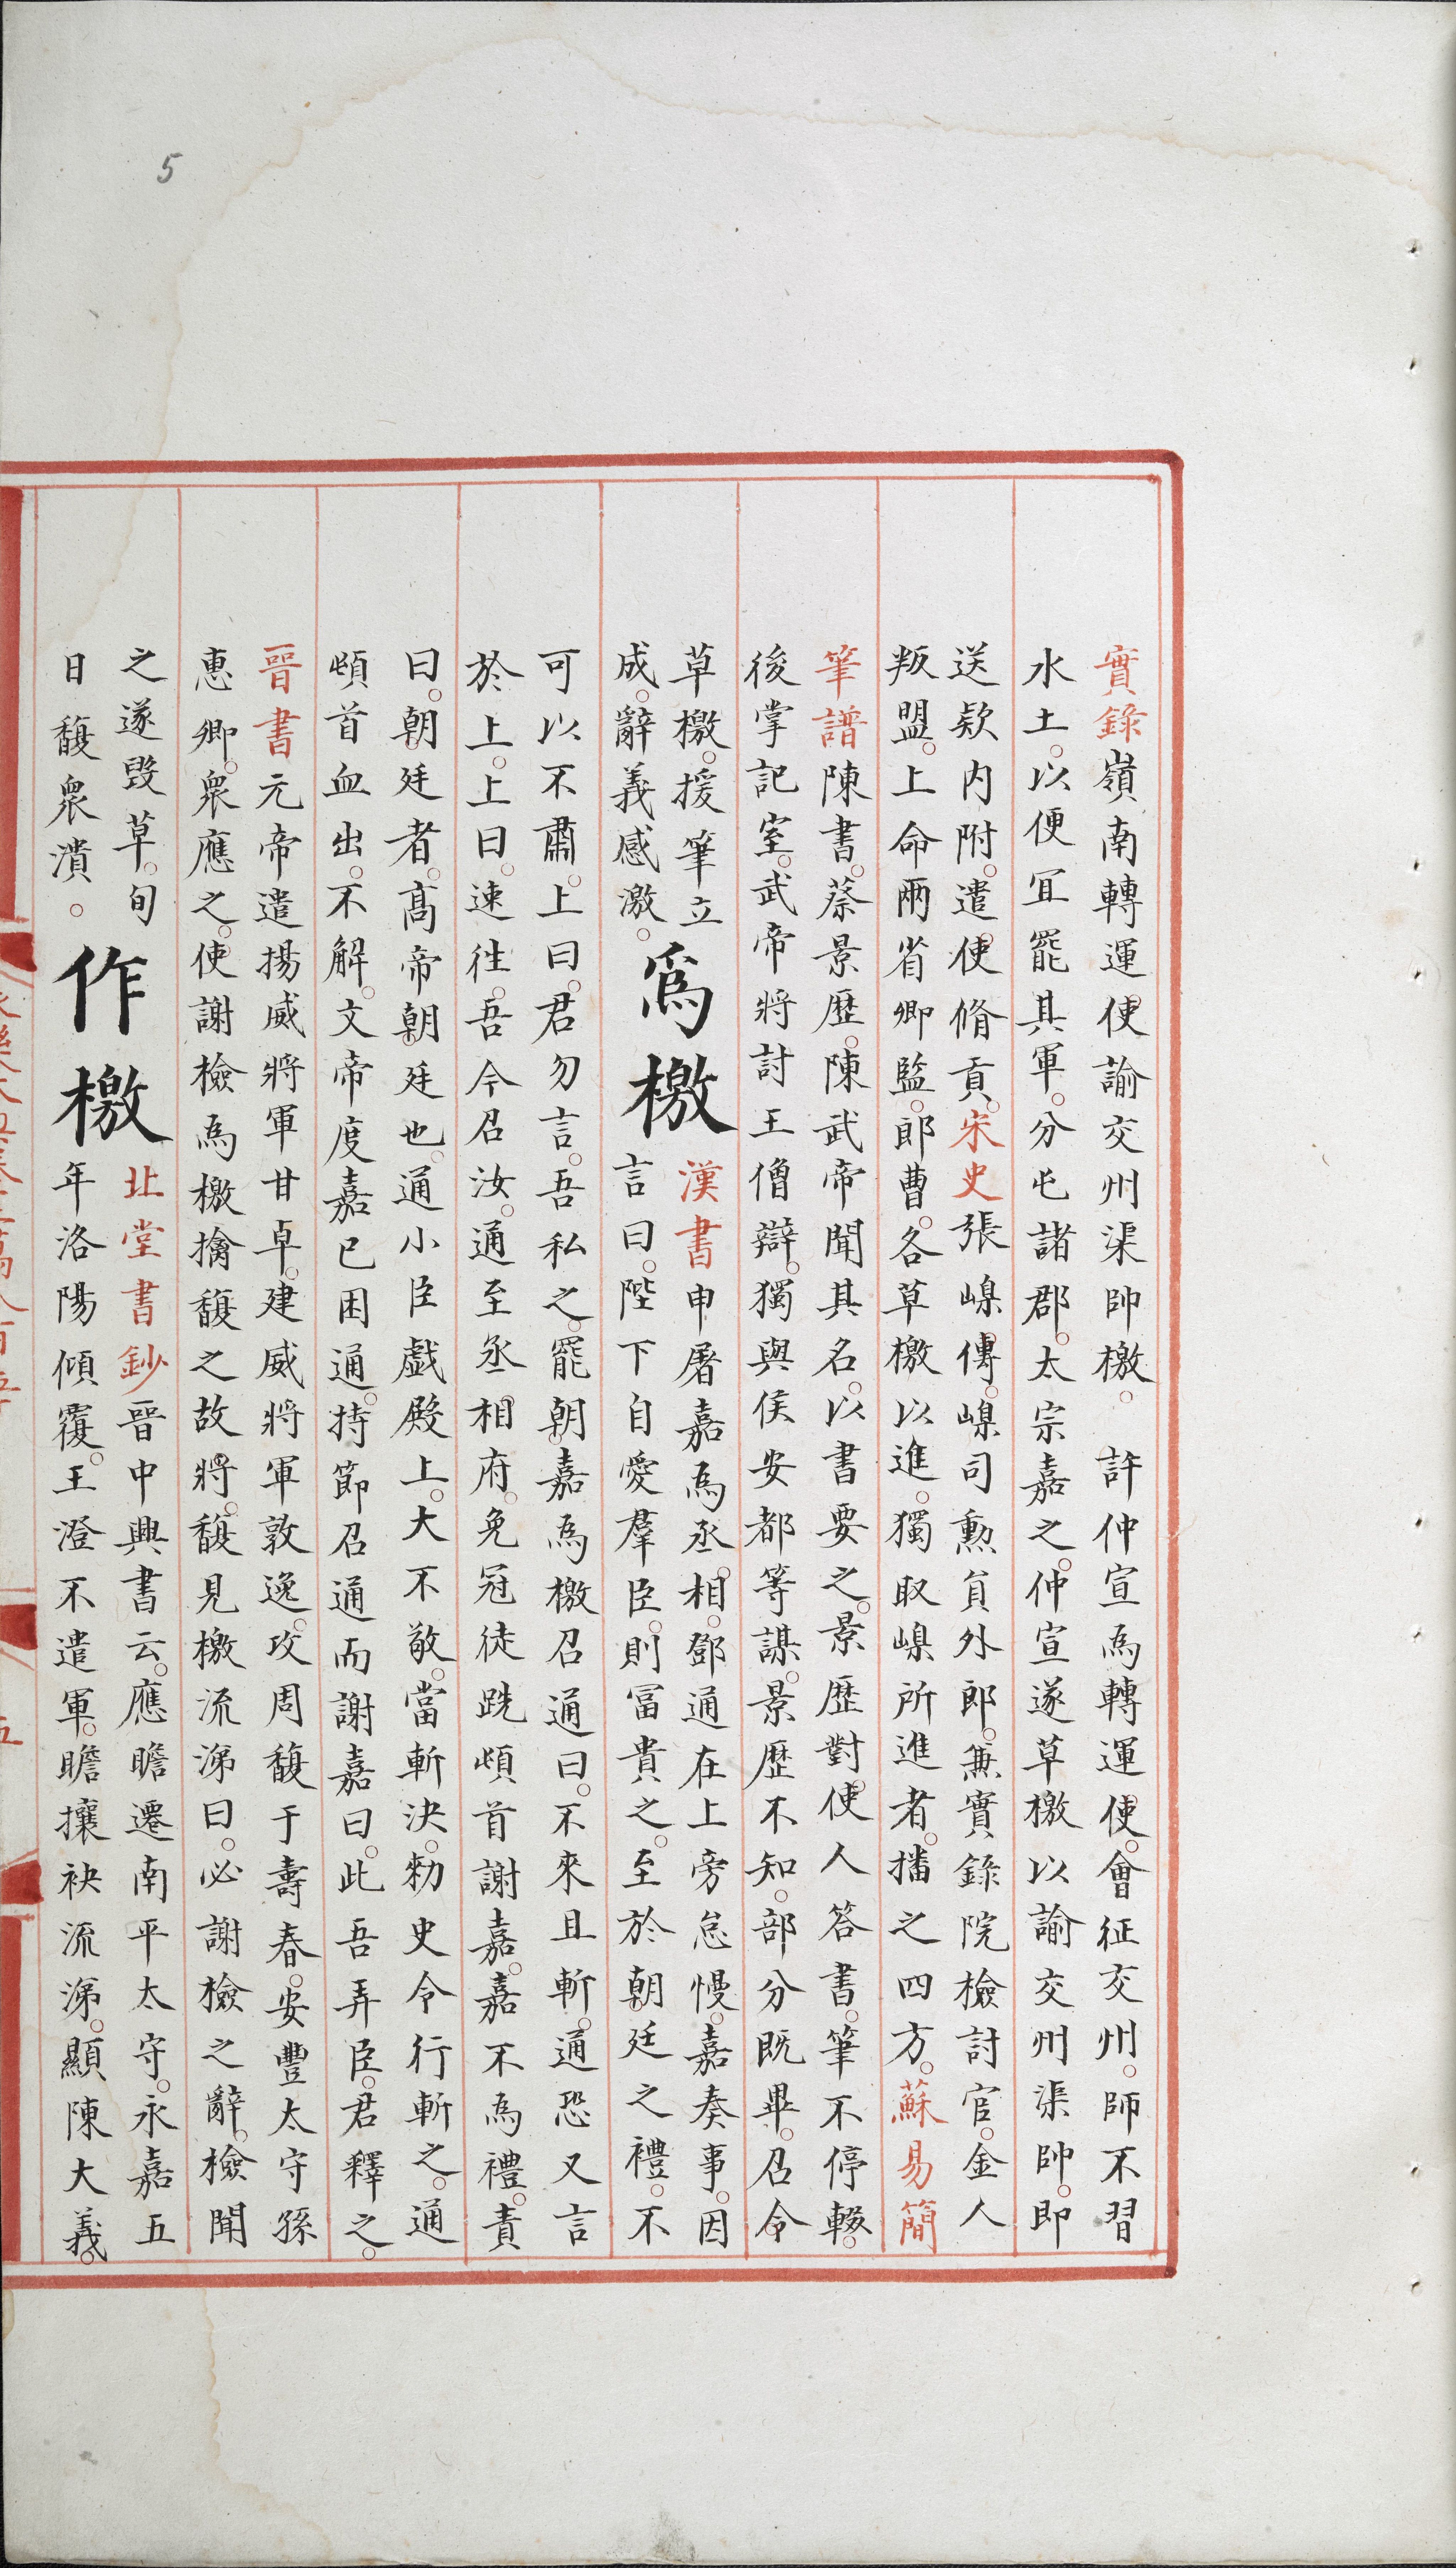 5
實錄嶺南轉運使諭交州渠帥檄。許仲宣為轉運使。會征交州。師不習
水土。以便宜罷其軍。分屯諸郡。太宗嘉之。仲宣遂草檄以諭交州渠帥。即
送欵內附。遣使脩貢。宋史張嵲傳。嵲司勲員外郎。兼實錄院檢討官。金人
叛盟。上命兩省卿監。郎曹。各草檄以進。獨取嵲所進者。播之四方。蘇易簡
筆譜陳書。蔡景歷。陳武帝聞其名。以書要之。景歷對使人答書。筆不停輟。
後掌記室。武帝將討王僧辯。獨與侯安都等謀。景歷不知。部分既畢。召令
草檄。援筆立
成。辭義感激。
爲檄
漢書申屠嘉為丞相。鄧通在上旁怠慢。嘉奏事。因
言曰。陛下自愛羣臣。則冨貴之。至於朝廷之禮。不
可以不肅。上曰。君勿言。吾私之。罷朝。嘉為檄召通曰。不來且斬。通恐又言
於上。上曰。速徃。吾今召汝。通至丞相府。免冠徒跣頓首謝嘉。嘉不為禮。責
曰。朝廷者。髙帝朝廷也。通小臣戯殿上。大不敬。當斬決。勑史令行斬之。通
頓首血出。不解。文帝度嘉已困通。持節召通而謝嘉曰。此吾弄臣。君釋之。
晉書元帝遣揚威將軍甘卓。建威將軍敦逸。攻周馥于壽春。安豐太守孫
惠卿。衆應之。使謝檢為檄擒馥之故將。馥見檄流涕曰。必謝檢之辭。檢聞
之遂毀草。旬
日馥衆潰。
作檄
北堂書鈔晉中興書云。應瞻遷南平太守。永嘉五
年洛陽傾覆。王澄不遣軍。瞻攘袂流涕。顯陳大義。